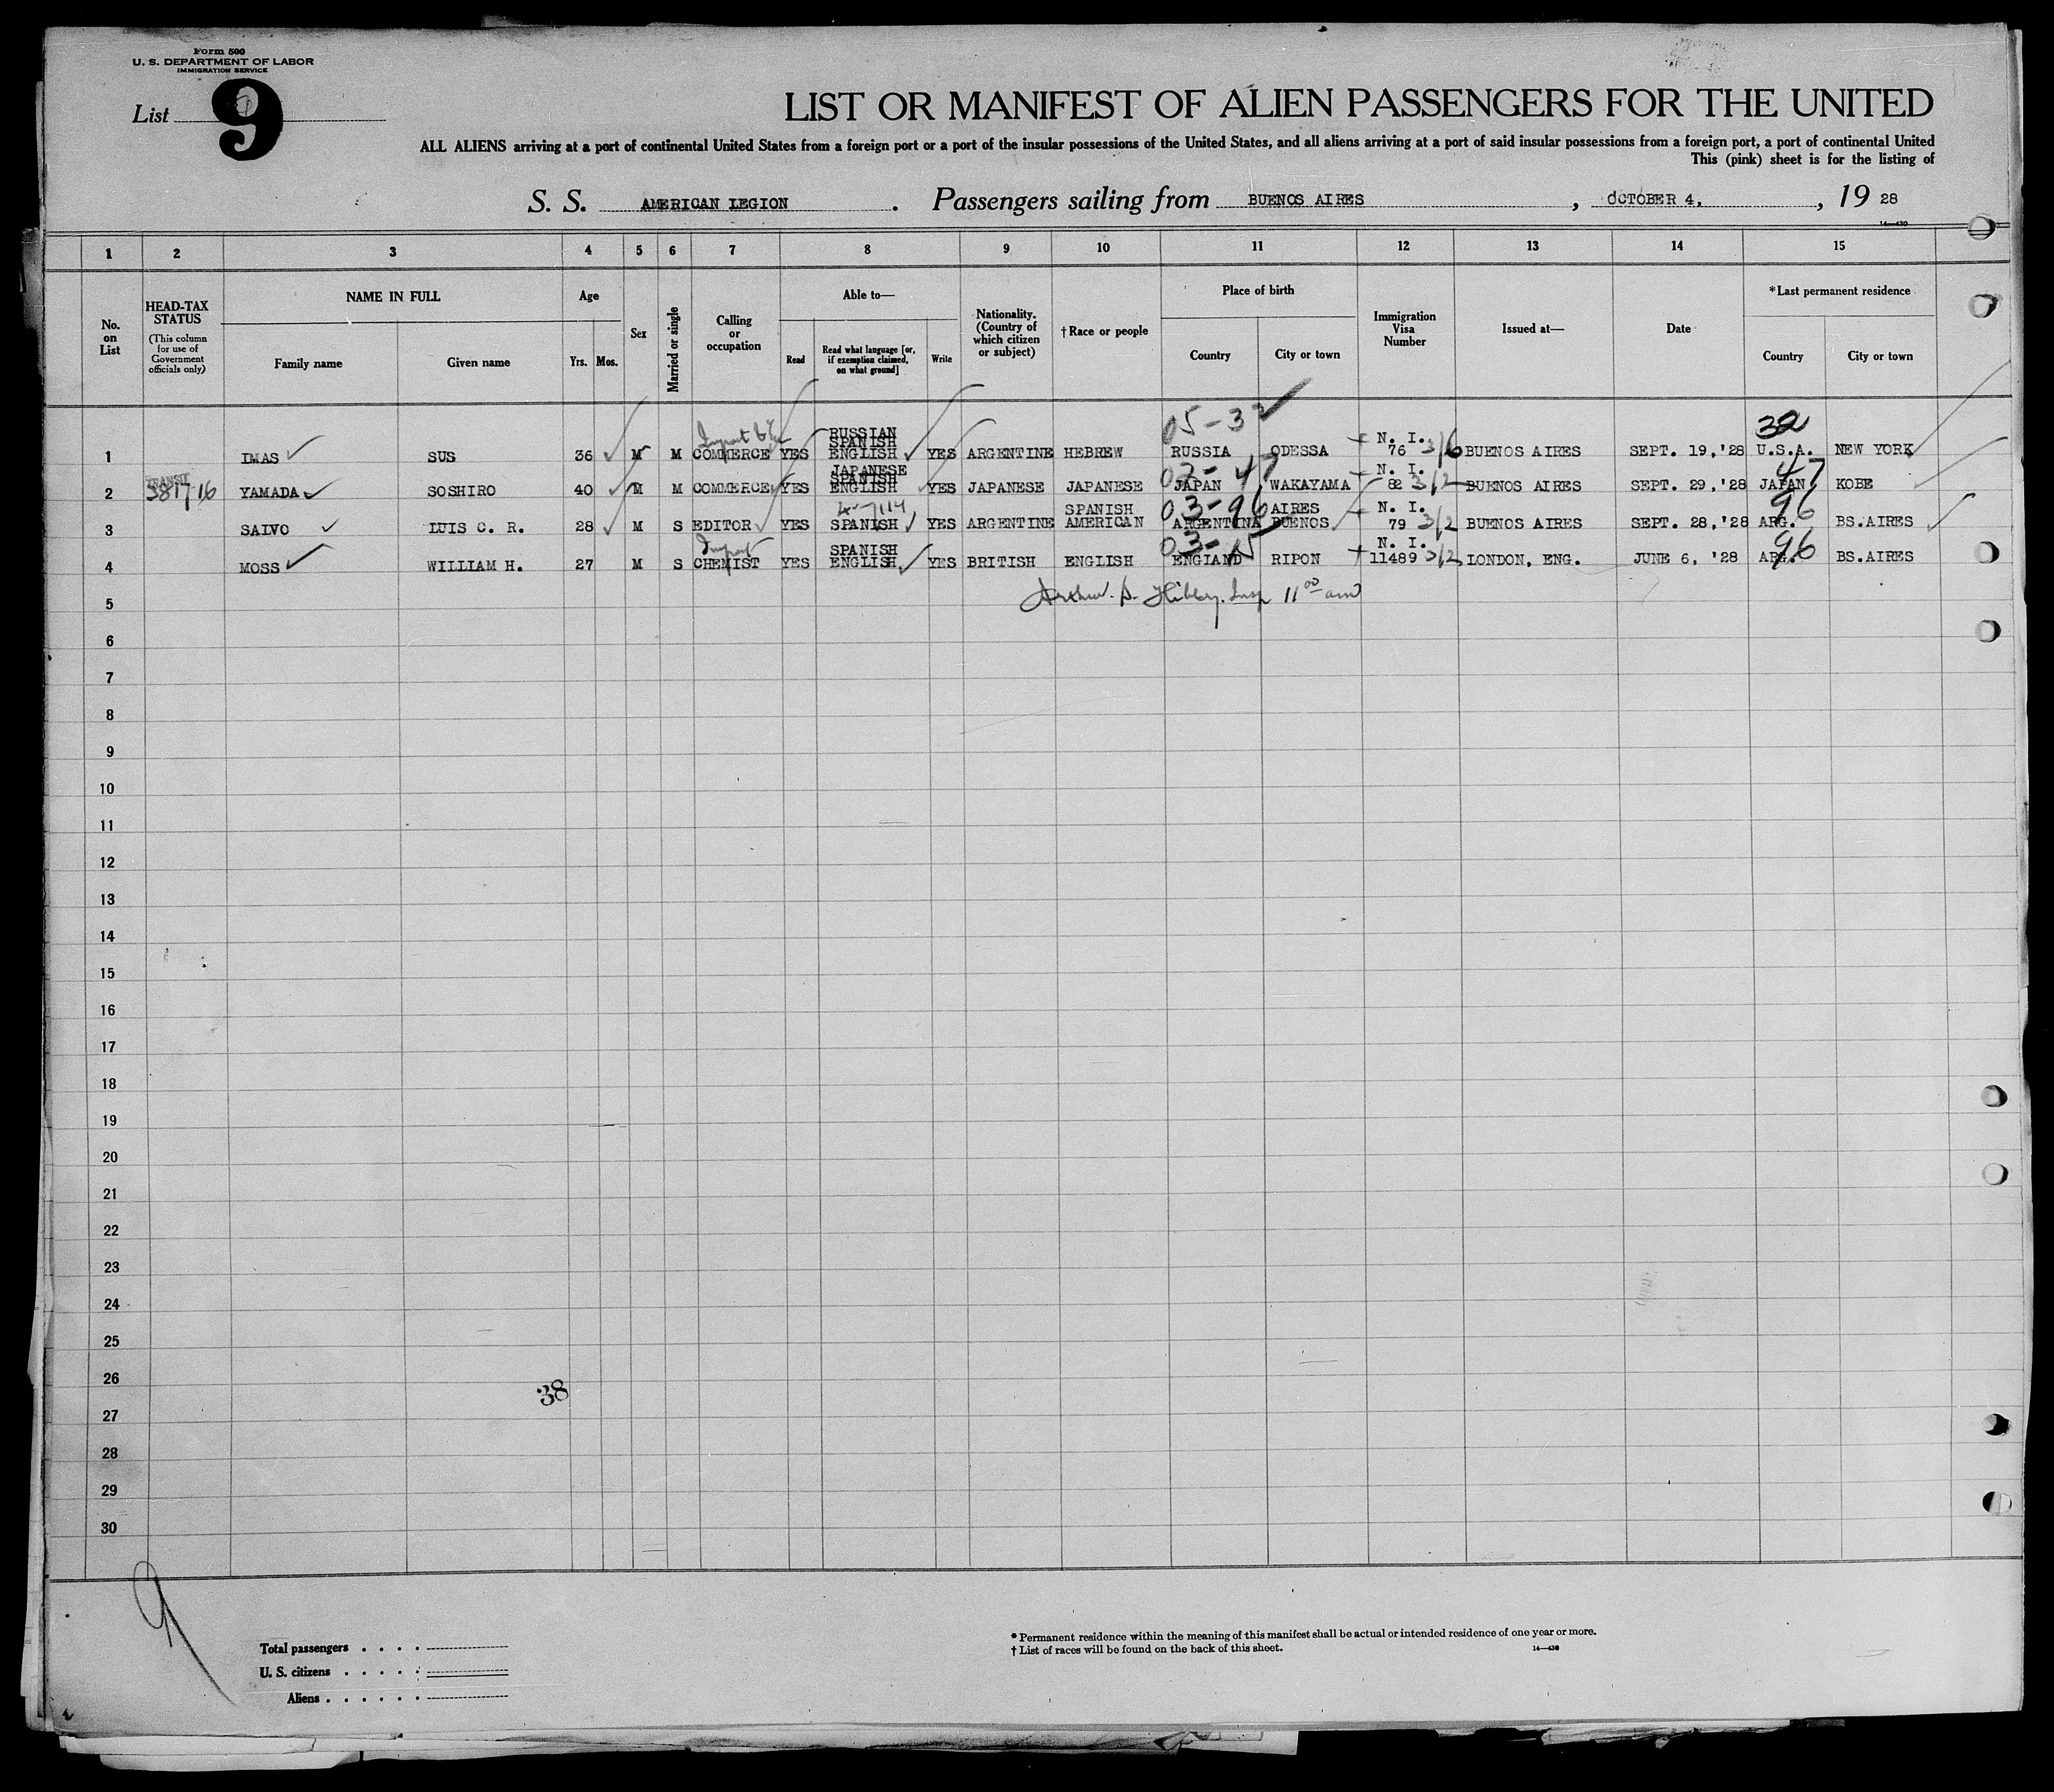 Form 500
U. S. DEPARTMENT OF LABOR
IMMIGRATION SERVICE
List 9
LIST OR MANIFEST OF ALIEN PASSENGERS FOR THE UNITED
ALL ALIENS arriving at a port of continental United States from a foreign port or a port of the insular possessions of the United States, and all aliens arriving at a port of said insular possessions from a foreign port, a port of continental United
This (pink) sheet is for the listing of
S. S. AMERICAN LEGION . Passengers sailing from BUENOS AIRES , OCTOBER 4, , 19 28
14—430
1 2 3 4 5 6 7 8 9 10 11 12 13 14 15
No. on List
HEAD-TAX STATUS
(This column for use of Government officials only)
NAME IN FULL
Family name Given name
Age
Yrs. Mos.
Sex
Married or single
Calling or occupation
Able to—
Read
Read what language [or, if exemption claimed, on what ground]
Write
Nationality. (Country of which citizen or subject)
† Race or people
Place of birth
Country City or town
Immigration Visa Number
Issued at—
Date
* Last permanent residence
Country City or town
05-3 32
RUSSIAN
SPANISH N. I.
1 IMAS SUS 36 M M COMMERCE YES ENGLISH YES ARGENTINE HEBREW RUSSIA ODESSA 76 3/6 BUENOS AIRES SEPT. 19,'28 U.S.A. NEW YORK
TRANSIT JAPANESE
SPANISH 02-47 N. I. 47
2 38117/16 YAMADA SOSHIRO 40 M M COMMERCE YES ENGLISH YES JAPANESE JAPANESE JAPAN WAKAYAMA 82 3/2 BUENOS AIRES SEPT. 29,'28 JAPAN KOBE
SPANISH 03-96 AIRES N. I. 96
3 SALVO LUIS C. R. 28 M S EDITOR YES SPANISH YES ARGENTINE AMERICAN ARGENTINA BUENOS 79 3/2 BUENOS AIRES SEPT. 28,'28 ARG. BS.AIRES
Import SPANISH 03-15 N. I. 96
4 MOSS WILLIAM H. 27 M S CHEMIST YES ENGLISH YES BRITISH ENGLISH ENGLAND RIPON 11489 3/2 LONDON, ENG. JUNE 6, '28 ARG. BS.AIRES
5 Insp 11 00 am
6
7
8
9
10
11
12
13
14
15
16
17
18
19
20
21
22
23
24
25
26
38
27
28
29
30
9
Total passengers
U. S. citizens
Aliens
* Permanent residence within the meaning of this manifest shall be actual or intended residence of one year or more.
† List of races will be found on the back of this sheet. 14—430